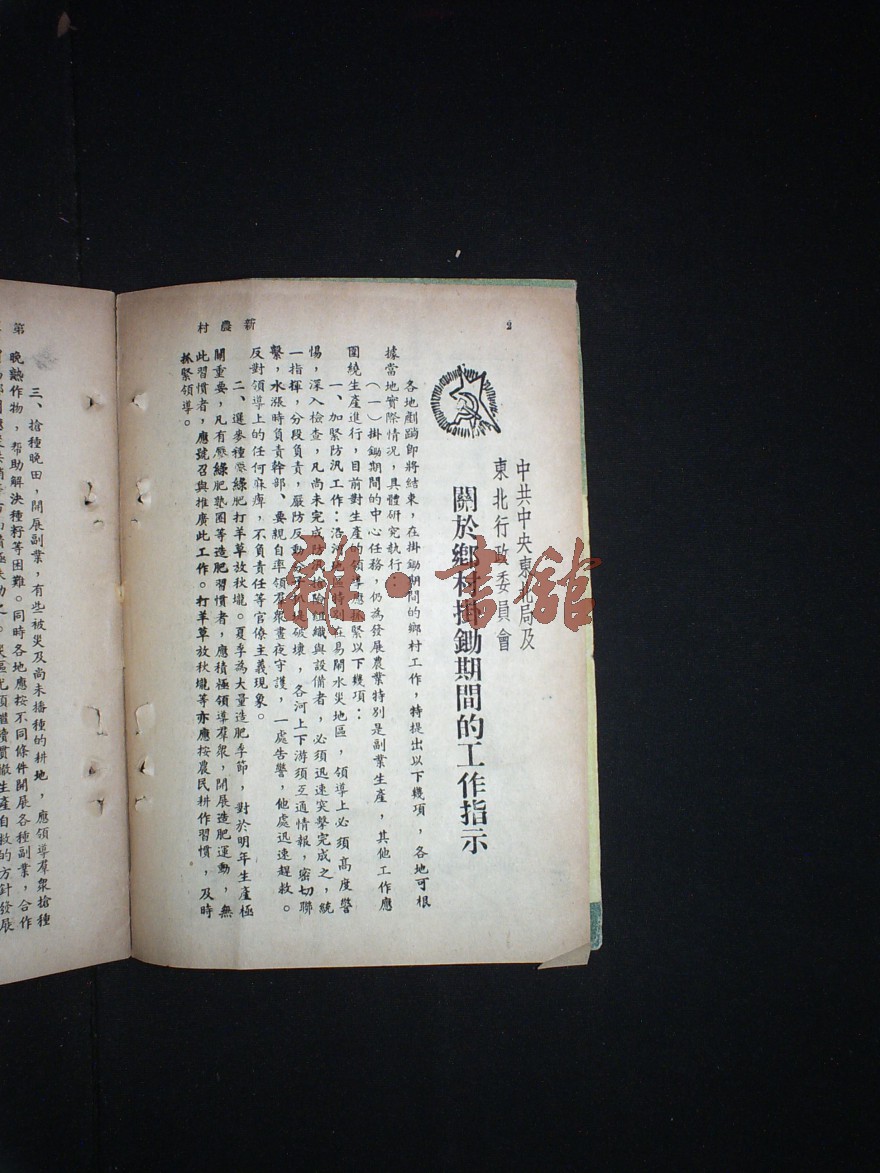 2
新農村
中共中央東北局及
東北行政委員會
關於鄉村掛鋤期間的工作指示
各地剷蹚即將結束，在掛鋤期間的鄉村工作，特提出以下幾項，各地可根
據當地實際情況，具體研究執行
（一）掛鋤期間的中心任務，仍為發展農業特別是副業生產，其他工作應
圍繞生產進行，目前對生產的領導應抓緊以下幾項：
一、加緊防汎工作：洛河地區特別在易鬧水災地區，領導上必須高度警
惕，深入檢查，凡尚未完成防汎搶險組織與設備者，必須迅速突擊完成之，統
一指揮，分段負責，嚴防反動破壞，各河上下游須互通情報，密切聯
繫，水漲時負責幹部、要親自率領羣眾晝夜守護，一處告警，他處迅速趕救。
反對領導上的任何麻痺，不負責任等官僚主義現象。
二、選麥種壓綠肥打羊草放秋壠。夏季為大量造肥季節，對於明年生產極
關重要，凡有壓綠肥墊圈等造肥習慣者，應積極領導羣眾，開展造肥運動，無
此習慣者，應號召與推廣此工作。打羊草放秋壠等亦應按農民耕作習慣，及時
抓緊領導。
第
三、搶種晚田，開展副業，有些被災及尚未播種的耕地，應領導羣眾搶種
晚熟作物，幫助解決種籽等困難。同時各地應按不同條件開展各種副業，合作
災區尤須繼續貫徹生產自救的方針發展